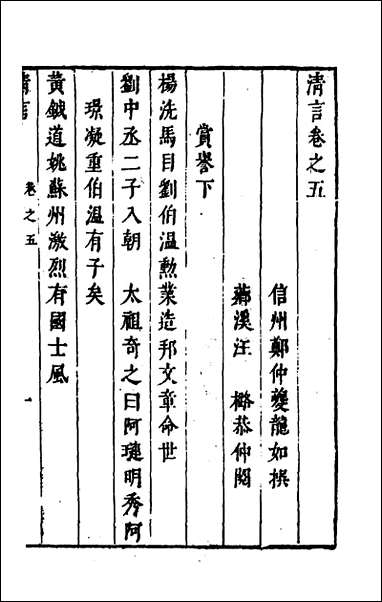 清言卷之五
信州鄭仲夔龍如撰
溪汪　恭仲閱
賞譽下
楊洗馬目劉伯温勲業造邦文章命世
劉中丞二子入朝　太祖奇之曰阿璉明秀阿
璟凝重伯温有子矣
黃鉞道姚蘇州激烈有國士風
清言
卷之五
一